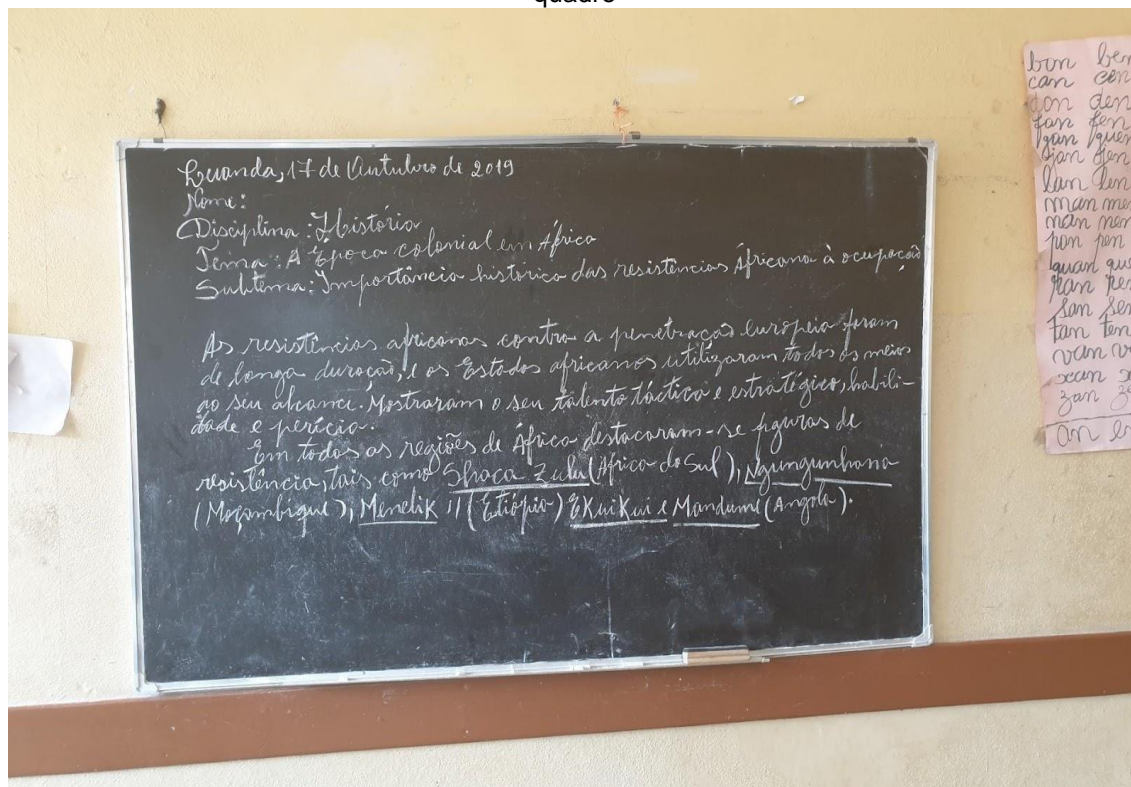 quadro
Luanda, 17 de Outubro de 2019
Nome:
Disciplina: História
Tema: A Época colonial em África
Subtema: Importância histórica das resistências Áfricana à ocupação
As resistências africanas contra a penetração europeia foram
de longa duração, e os Estados africanos utilizaram todos os meios
ao seu alcance. Mostraram o seu talento táctico e estratégico, habili-
dade e perícia.
Em todas as regiões de África destacaram-se figuras de
resistência, tais como Shaca Zulu (África do Sul), Ngungunhana
(Moçambique), Menelik II (Etiópia) EKuiKui e Mandume (Angola).
bon ben
can cen
don den
fan fen
gan guen
jan jen
lan len
man men
nan nen
pan pen
quan que
ran ren
san sen
tan ten
van v
xan x
zan ze
an en